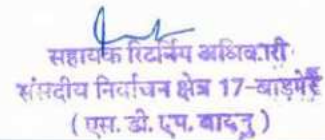 सहायक रिटर्निग अधिकारी
संसदीय निर्वाचन क्षेत्र 17-बाड़मेर
( एस. डी. एम. बायतु )